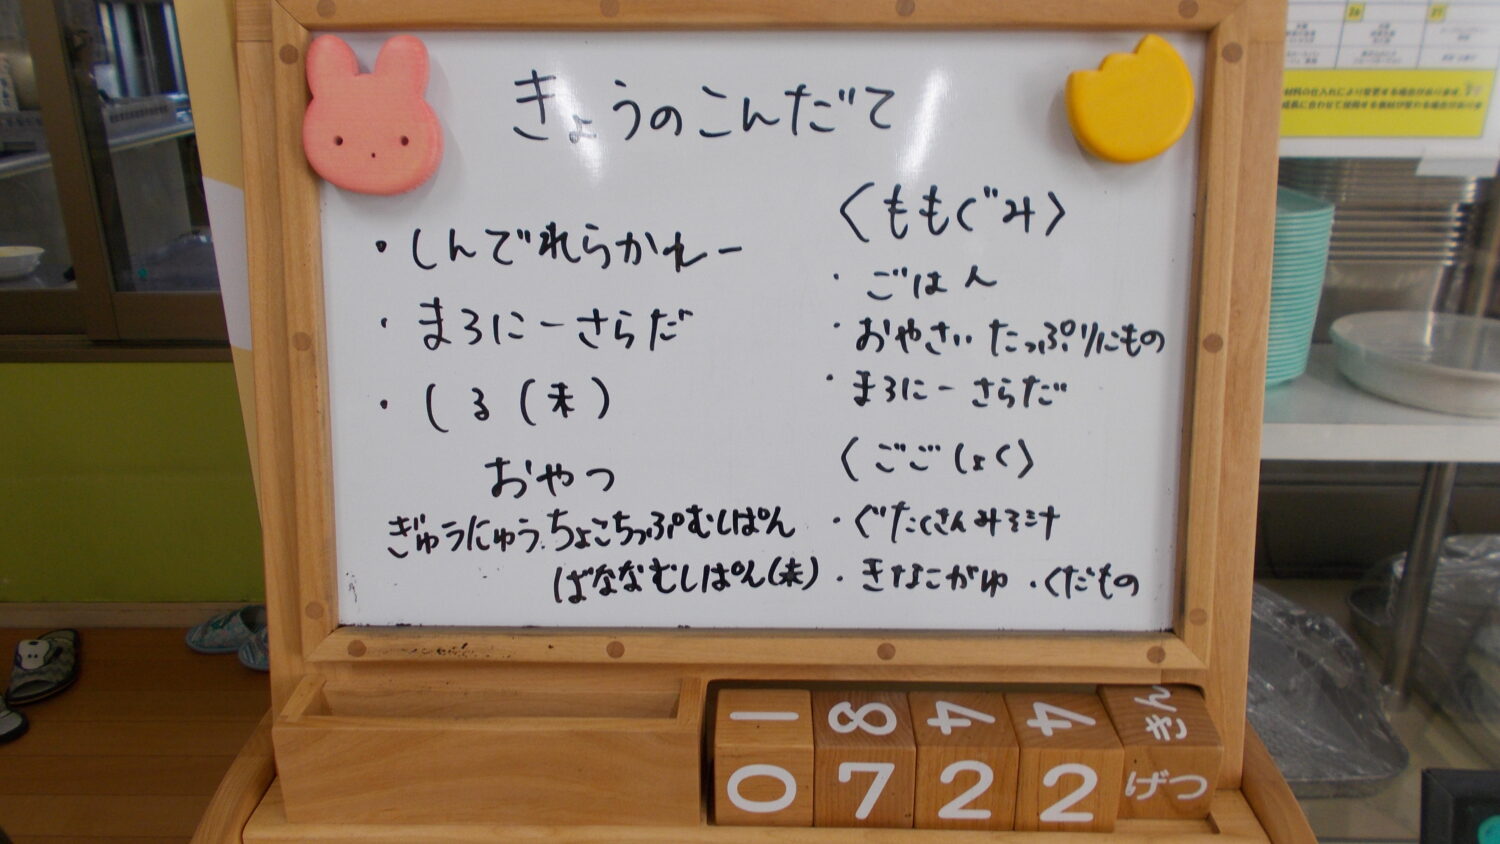 きょうのこんだて
・しんでれらかれー
・まろにーさらだ
・しる(未)
おやつ
ぎゅうにゅう.ちょこちっぷむしぱん
ばななむしぱん(未)
〈ももぐみ〉
・ごはん
・おやさいたっぷりにもの
・まろにーさらだ
〈ごごしょく〉
・ぐたくさんみそしす
・きなこがゆ ・くだもの
1 8 4 4 きん
0 7 2 2 げつ
26
27